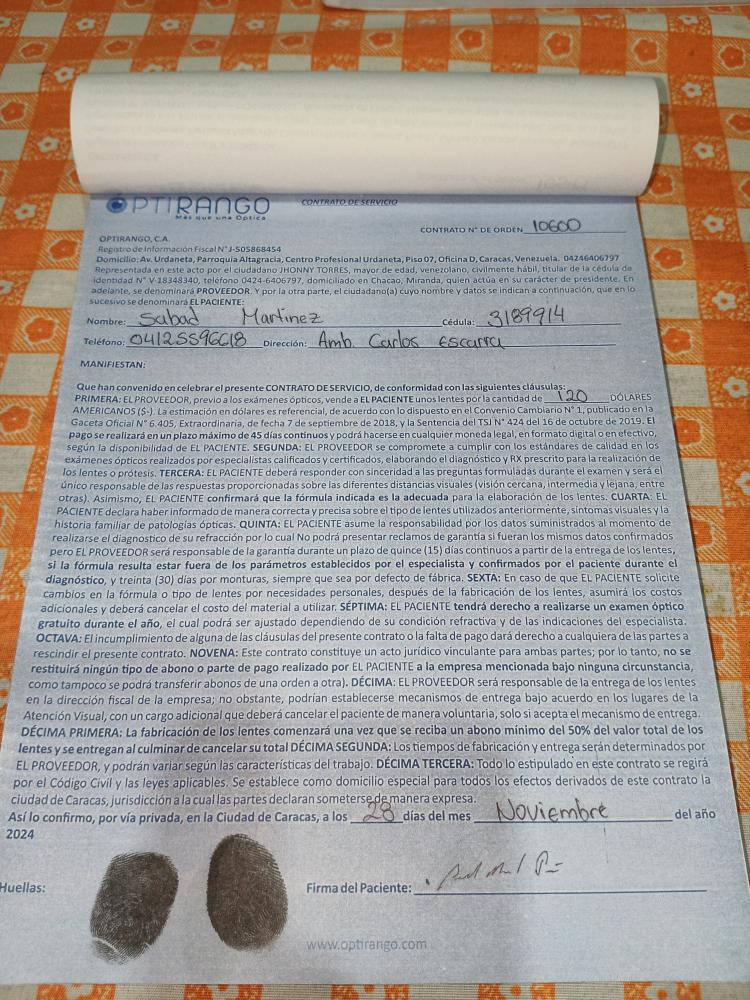 OPTIRANGO
Más que una Óptica
CONTRATO DE SERVICIO
CONTRATO N° DE ORDEN 10600
OPTIRANGO, C.A.
Registro de Información Fiscal N° J-505868454
Domicilio: Av. Urdaneta, Parroquia Altagracia, Centro Profesional Urdaneta, Piso 07, Oficina D, Caracas, Venezuela. 04246406797
Representada en este acto por el ciudadano JHONNY TORRES, mayor de edad, venezolano, civilmente hábil, titular de la cédula de
identidad N° V-18348340, teléfono 0424-6406797, domiciliado en Chacao, Miranda, quien actúa en su carácter de presidente. En
adelante, se denominará PROVEEDOR. Y por la otra parte, el ciudadano(a) cuyo nombre y datos se indican a continuación, que en lo
sucesivo se denominará EL PACIENTE:
Nombre: Sabad Martinez Cédula: 3189914
Teléfono: 04125596618 Dirección: Amb. Carlos Escarra
MANIFIESTAN:
Que han convenido en celebrar el presente CONTRATO DE SERVICIO, de conformidad con las siguientes cláusulas:
PRIMERA: EL PROVEEDOR, previo a los exámenes ópticos, vende a EL PACIENTE unos lentes por la cantidad de 120 DÓLARES
AMERICANOS ($-). La estimación en dólares es referencial, de acuerdo con lo dispuesto en el Convenio Cambiario N° 1, publicado en la
Gaceta Oficial N° 6.405, Extraordinaria, de fecha 7 de septiembre de 2018, y la Sentencia del TSJ N° 424 del 16 de octubre de 2019. El
pago se realizará en un plazo máximo de 45 días continuos y podrá hacerse en cualquier moneda legal, en formato digital o en efectivo,
según la disponibilidad de EL PACIENTE. SEGUNDA: EL PROVEEDOR se compromete a cumplir con los estándares de calidad en los
exámenes ópticos realizados por especialistas calificados y certificados, elaborando el diagnóstico y RX prescrito para la realización de
los lentes o prótesis. TERCERA: EL PACIENTE deberá responder con sinceridad a las preguntas formuladas durante el examen y será el
único responsable de las respuestas proporcionadas sobre las diferentes distancias visuales (visión cercana, intermedia y lejana, entre
otras). Asimismo, EL PACIENTE confirmará que la fórmula indicada es la adecuada para la elaboración de los lentes. CUARTA: EL
PACIENTE declara haber informado de manera correcta y precisa sobre el tipo de lentes utilizados anteriormente, síntomas visuales y la
historia familiar de patologías ópticas. QUINTA: EL PACIENTE asume la responsabilidad por los datos suministrados al momento de
realizarse el diagnostico de su refracción por lo cual No podrá presentar reclamos de garantía si fueran los mismos datos confirmados
pero EL PROVEEDOR será responsable de la garantía durante un plazo de quince (15) días continuos a partir de la entrega de los lentes,
si la fórmula resulta estar fuera de los parámetros establecidos por el especialista y confirmados por el paciente durante el
diagnóstico, y treinta (30) días por monturas, siempre que sea por defecto de fábrica. SEXTA: En caso de que EL PACIENTE solicite
cambios en la fórmula o tipo de lentes por necesidades personales, después de la fabricación de los lentes, asumirá los costos
adicionales y deberá cancelar el costo del material a utilizar. SÉPTIMA: EL PACIENTE tendrá derecho a realizarse un examen óptico
gratuito durante el año, el cual podrá ser ajustado dependiendo de su condición refractiva y de las indicaciones del especialista.
OCTAVA: El incumplimiento de alguna de las cláusulas del presente contrato o la falta de pago dará derecho a cualquiera de las partes a
rescindir el presente contrato. NOVENA: Este contrato constituye un acto jurídico vinculante para ambas partes; por lo tanto, no se
restituirá ningún tipo de abono o parte de pago realizado por EL PACIENTE a la empresa mencionada bajo ninguna circunstancia,
como tampoco se podrá transferir abonos de una orden a otra). DÉCIMA: EL PROVEEDOR será responsable de la entrega de los lentes
en la dirección fiscal de la empresa; no obstante, podrían establecerse mecanismos de entrega bajo acuerdo en los lugares de la
Atención Visual, con un cargo adicional que deberá cancelar el paciente de manera voluntaria, solo si acepta el mecanismo de entrega.
DÉCIMA PRIMERA: La fabricación de los lentes comenzará una vez que se reciba un abono mínimo del 50% del valor total de los
lentes y se entregan al culminar de cancelar su total DÉCIMA SEGUNDA: Los tiempos de fabricación y entrega serán determinados por
EL PROVEEDOR, y podrán variar según las características del trabajo. DÉCIMA TERCERA: Todo lo estipulado en este contrato se regirá
por el Código Civil y las leyes aplicables. Se establece como domicilio especial para todos los efectos derivados de este contrato la
ciudad de Caracas, jurisdicción a la cual las partes declaran someterse de manera expresa.
Así lo confirmo, por vía privada, en la Ciudad de Caracas, a los 28 días del mes Noviembre del año
2024
Huellas:
Firma del Paciente:
www.optirango.com